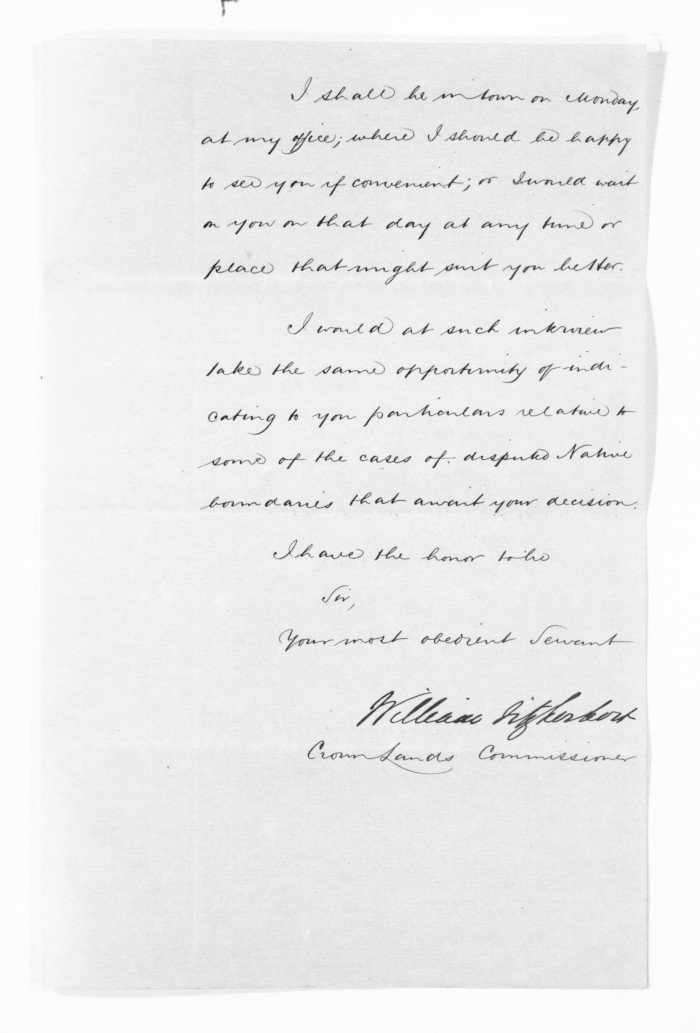 I shall be in town on Monday,
at my office; where I should be happy
to see you if convenient; or I would wait
on you on that day at any time or
place that might suit you better.
I would at such interview
take the same opportunity of indi-
cating to you particulars relative to
some of the cases of disputed Native
boundaries that await your decision.
I have the honor to be
Sir,
Your most obedient Servant
William Fitzherbert
Crown Lands Commissioner